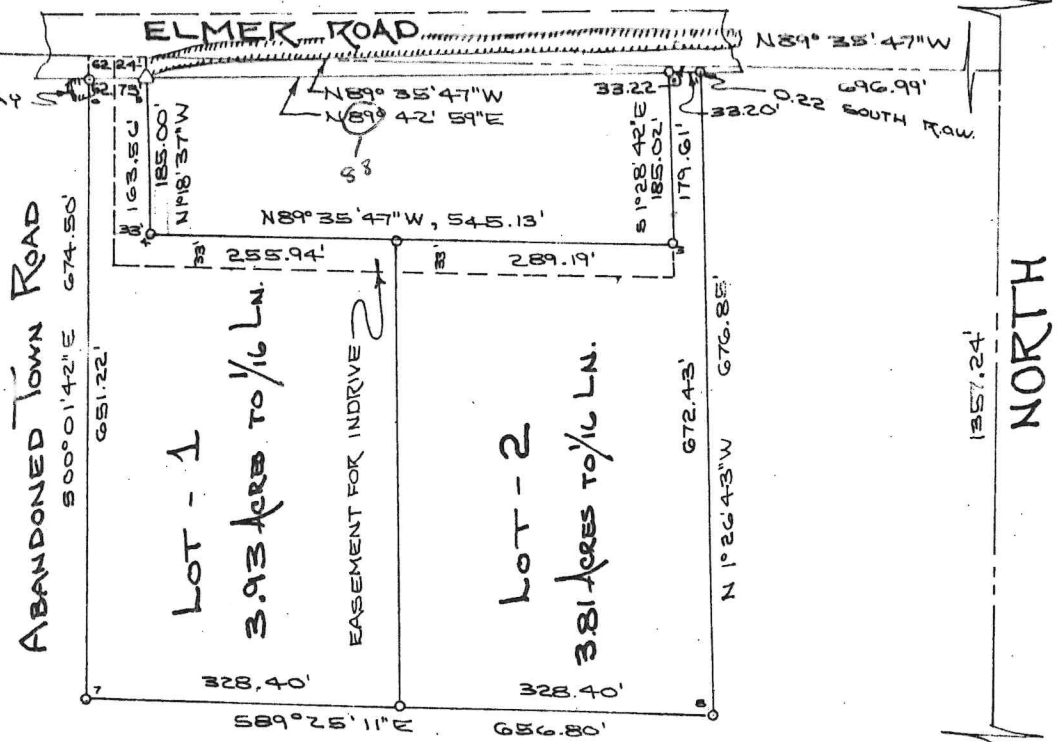 ELMER ROAD
N89° 35' 47"W
62 24'
62 73'
N89° 35' 47"W
N89° 42' 59"E
88
33.22
33.20'
0.22 SOUTH R.O.W.
696.99'
163.56'
185.00'
N1°18'37"W
S1°28'42"E
185.02'
179.61'
33'
4
N89° 35' 47"W, 545.13'
3
33'
255.94'
33'
289.19'
ABANDONED TOWN ROAD
S00°01'42"E 674.50'
651.22'
LOT - 1
3.93 ACRES TO 1/16 LN.
EASEMENT FOR INDRIVE
LOT - 2
3.81 ACRES TO 1/16 LN.
672.43'
N 1°26'43"W 676.85'
1357.24'
NORTH
7
328.40'
328.40'
8
S89°25'11"E 656.80'